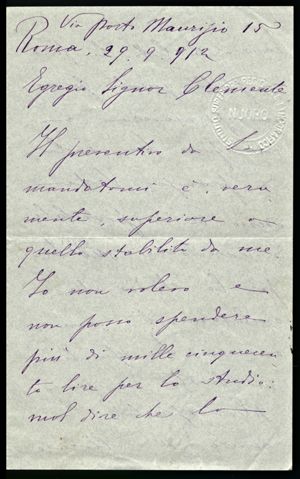 Via Porto Maurizio 15
Roma, 29. 9. 912
Egregio Signor Clemente
Il preventivo da Lei
mandatomi è vera
mente superiore a
quello stabilito da me.
Io non volevo e
non posso spendere
più di mille cinquecen
to lire per lo studio:
vuol dire che lo
NUORO